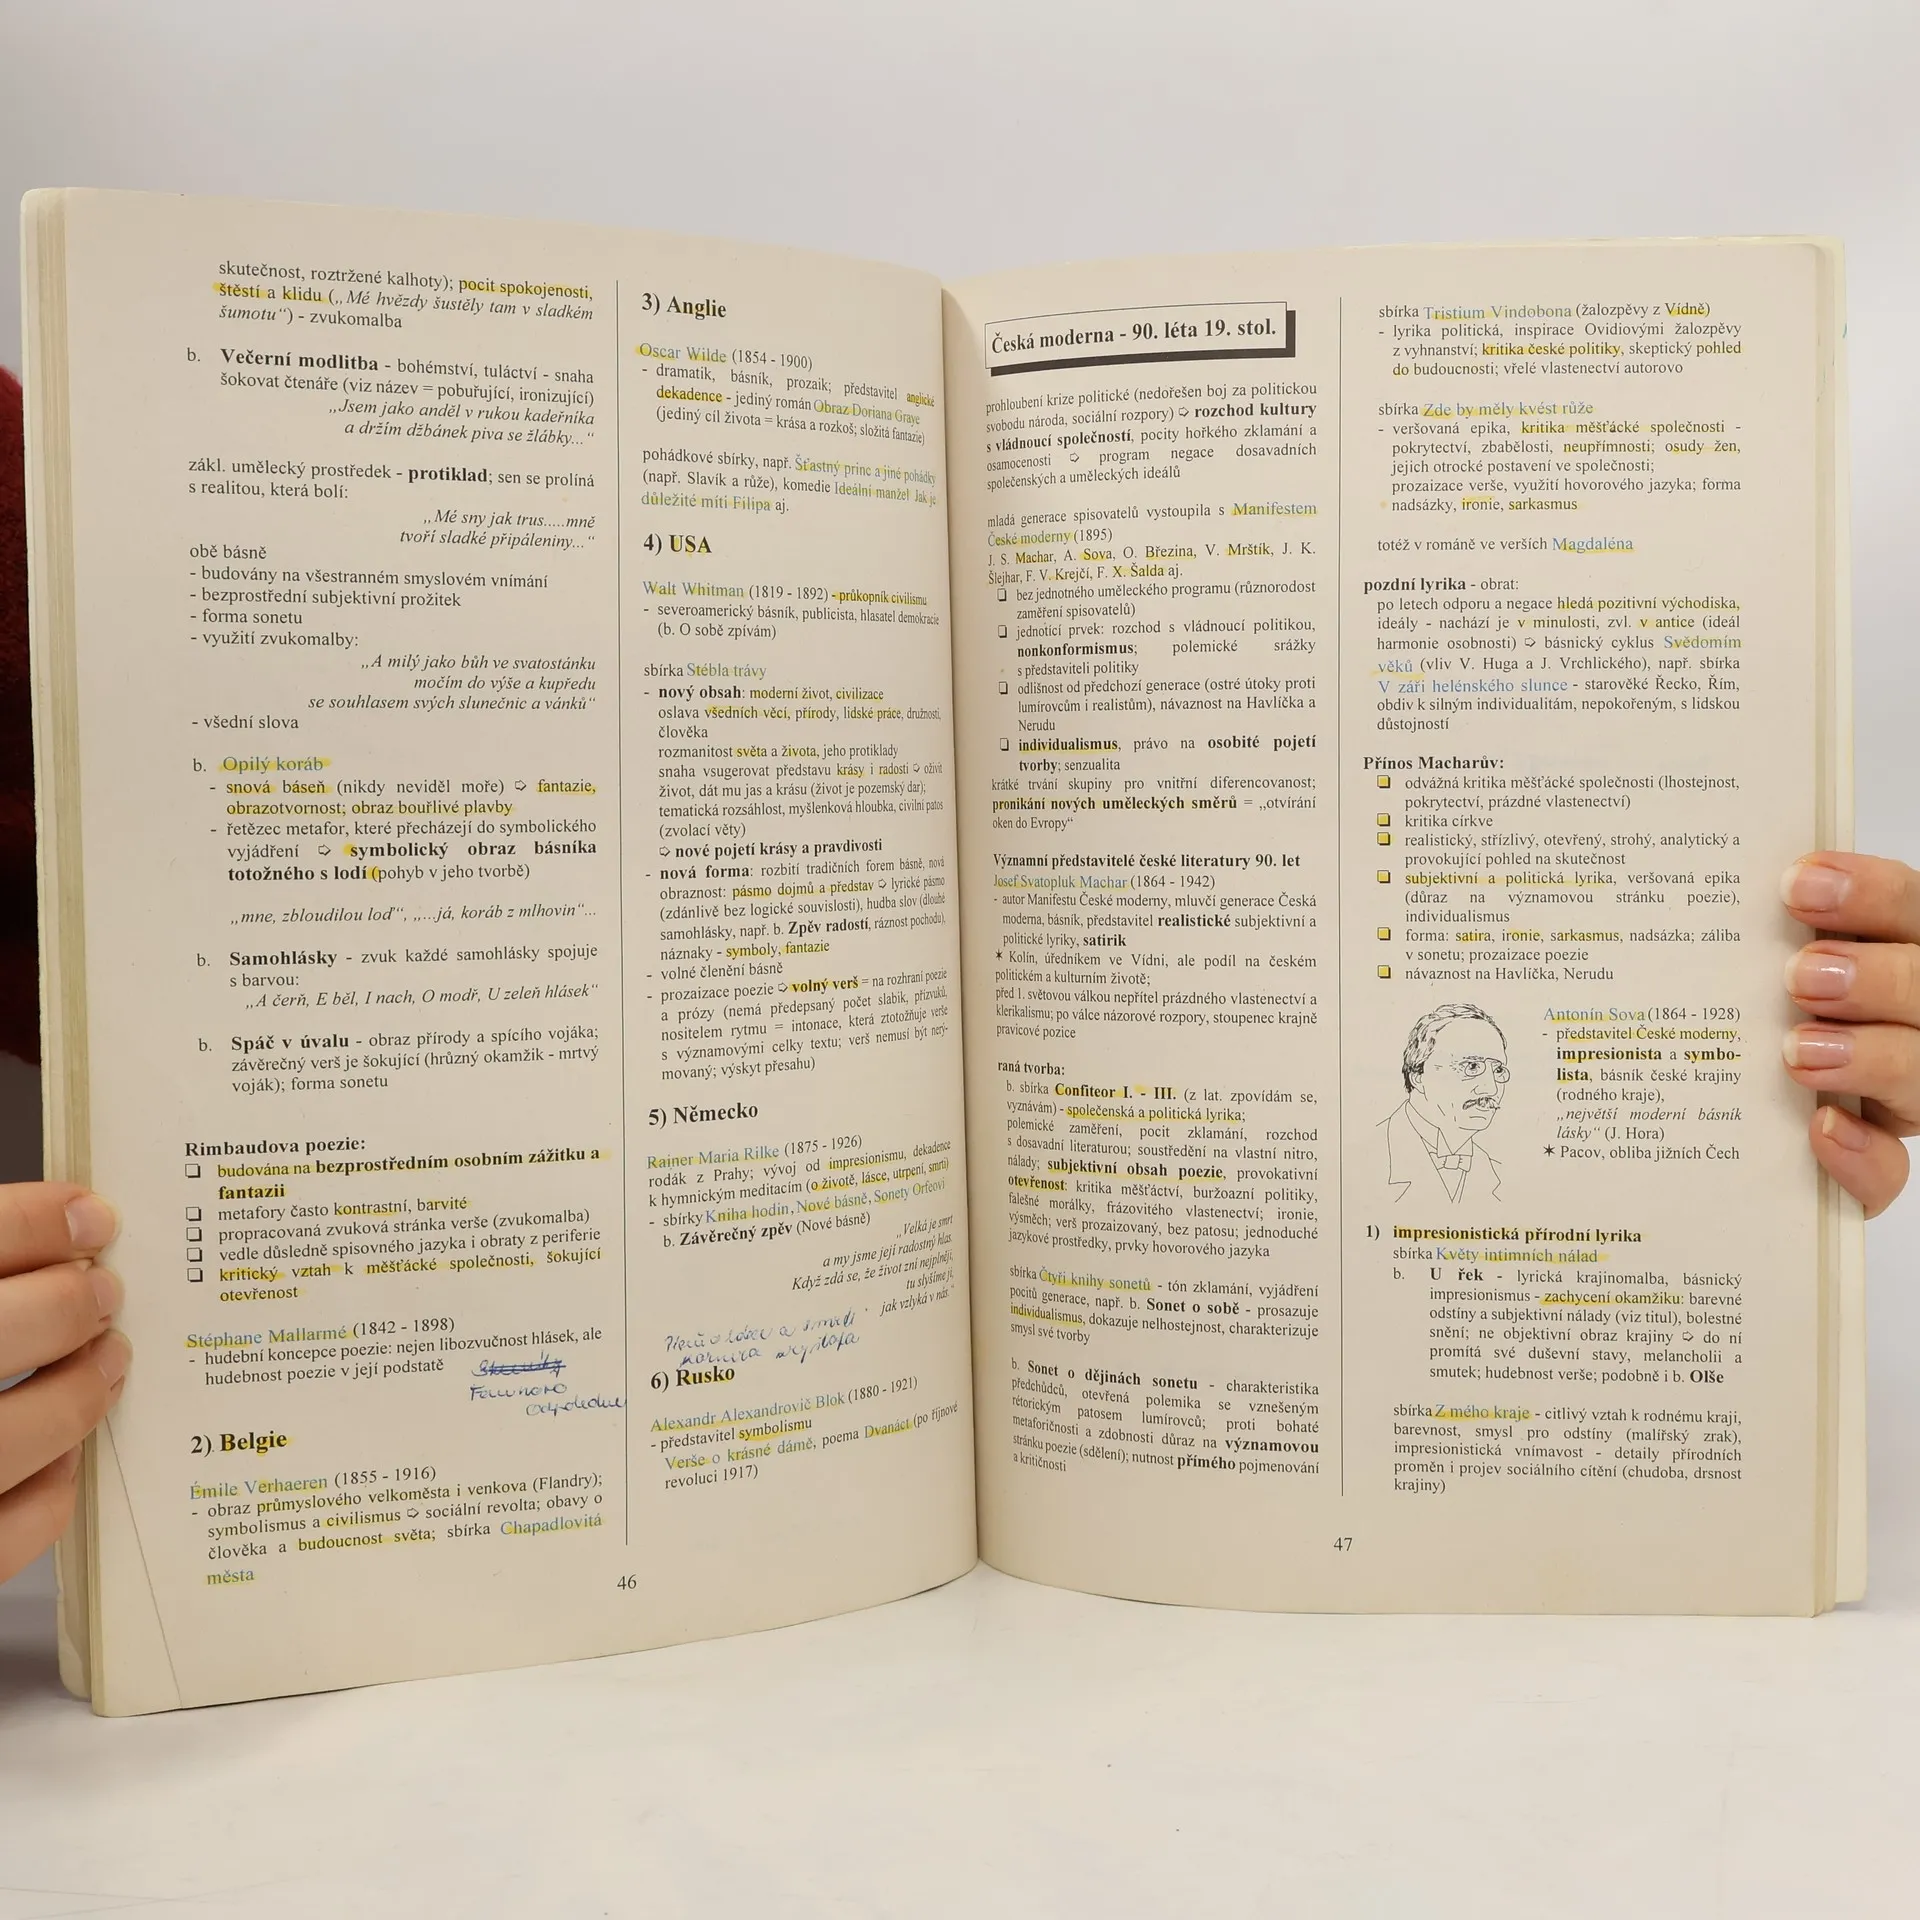 skutečnost, roztržené kalhoty); pocit spokojenosti,
štěstí a klidu („Mé hvězdy šustěly tam v sladkém
šumotu“) - zvukomalba
b. Večerní modlitba - bohémství, tuláctví - snaha
šokovat čtenáře (viz název = pobuřující, ironizující)
„Jsem jako anděl v rukou kadeřníka
a držím džbánek piva se žlábky...“
zákl. umělecký prostředek - protiklad; sen se prolíná
s realitou, která bolí:
„Mé sny jak trus.....mně
tvoří sladké připáleniny...“
obě básně
- budovány na všestranném smyslovém vnímání
- bezprostřední subjektivní prožitek
- forma sonetu
- využití zvukomalby:
„A milý jako bůh ve svatostánku
močím do výše a kupředu
se souhlasem svých slunečnic a vánků“
- všední slova
b. Opilý koráb
- snová báseň (nikdy neviděl moře) ⇨ fantazie,
obrazotvornost; obraz bouřlivé plavby
- řetězec metafor, které přecházejí do symbolického
vyjádření ⇨ symbolický obraz básníka
totožného s lodí (pohyb v jeho tvorbě)
„mne, zbloudilou loď“, „...já, koráb z mlhovin“...
b. Samohlásky - zvuk každé samohlásky spojuje
s barvou:
„A čerň, E běl, I nach, O modř, U zeleň hlásek“
b. Spáč v úvalu - obraz přírody a spícího vojáka;
závěrečný verš je šokující (hrůzný okamžik - mrtvý
voják); forma sonetu
Rimbaudova poezie:
❏ budována na bezprostředním osobním zážitku a
fantazii
❏ metafory často kontrastní, barvité
❏ propracovaná zvuková stránka verše (zvukomalba)
❏ vedle důsledně spisovného jazyka i obraty z periferie
❏ kritický vztah k měšťácké společnosti, šokující
otevřenost
Stéphane Mallarmé (1842 - 1898)
- hudební koncepce poezie: nejen libozvučnost hlásek, ale
hudebnost poezie v její podstatě
Faunovo
odpoledne
2) Belgie
Émile Verhaeren (1855 - 1916)
- obraz průmyslového velkoměsta i venkova (Flandry);
symbolismus a civilismus ⇨ sociální revolta; obavy o
člověka a budoucnost světa; sbírka Chapadlovitá
města
3) Anglie
Oscar Wilde (1854 - 1900)
- dramatik, básník, prozaik; představitel anglické
dekadence - jediný román Obraz Doriana Graye
(jediný cíl života = krása a rozkoš; složitá fantazie)
pohádkové sbírky, např. Šťastný princ a jiné pohádky
(např. Slavík a růže), komedie Ideální manžel Jak je
důležité míti Filipa aj.
4) USA
Walt Whitman (1819 - 1892) - průkopník civilismu
- severoamerický básník, publicista, hlasatel demokracie
(b. O sobě zpívám)
sbírka Stébla trávy
- nový obsah: moderní život, civilizace
oslava všedních věcí, přírody, lidské práce, družnosti,
člověka
rozmanitost světa a života, jeho protiklady
snaha vsugerovat představu krásy i radosti ⇨ oživit
život, dát mu jas a krásu (život je pozemský dar);
tematická rozsáhlost, myšlenková hloubka, civilní patos
(zvolací věty)
⇨ nové pojetí krásy a pravdivosti
- nová forma: rozbití tradičních forem básně, nová
obraznost: pásmo dojmů a představ ⇨ lyrické pásmo
(zdánlivě bez logické souvislosti), hudba slov (dlouhé
samohlásky, např. b. Zpěv radostí, ráznost pochodu),
náznaky - symboly, fantazie
- volné členění básně
- prozaizace poezie ⇨ volný verš = na rozhraní poezie
a prózy (nemá předepsaný počet slabik, přízvuků,
nositelem rytmu = intonace, která ztotožňuje verše
s významovými celky textu; verš nemusí být rerý-
movaný; výskyt přesahu)
5) Německo
Rainer Maria Rilke (1875 - 1926)
rodák z Prahy; vývoj od impresionismu, dekadence
k hymnickým meditacím (o životě, lásce, utrpení, smrti)
- sbírky Kniha hodin, Nové básně, Sonety Orfeovi
b. Závěrečný zpěv (Nové básně)
„Velká je smrt
a my jsme její radostný hlas.
Když zdá se, že život zní nejplněji,
tu slyšíme ji,
jak vzlyká v nás.“
o lásce a smrti
6) Rusko
Alexandr Alexandrovič Blok (1880 - 1921)
- představitel symbolismu
Verše o krásné dámě, poema Dvanáct (po říjnové
revoluci 1917)
46
Česká moderna - 90. léta 19. stol.
prohloubení krize politické (nedořešen boj za politickou
svobodu národa, sociální rozpory) ⇨ rozchod kultury
s vládnoucí společností, pocity hořkého zklamání a
osamocenosti ⇨ program negace dosavadních
společenských a uměleckých ideálů
mladá generace spisovatelů vystoupila s Manifestem
České moderny (1895)
J. S. Machar, A. Sova, O. Březina, V. Mrštík, J. K.
Šlejhar, F. V. Krejčí, F. X. Šalda aj.
❏ bez jednotného uměleckého programu (různorodost
zaměření spisovatelů)
❏ jednotící prvek: rozchod s vládnoucí politikou,
nonkonformismus; polemické srážky
s představiteli politiky
❏ odlišnost od předchozí generace (ostré útoky proti
lumírovcům i realistům), návaznost na Havlíčka a
Nerudu
❏ individualismus, právo na osobité pojetí
tvorby; senzualita
krátké trvání skupiny pro vnitřní diferencovanost;
pronikání nových uměleckých směrů = „otvírání
oken do Evropy“
Významní představitelé české literatury 90. let
Josef Svatopluk Machar (1864 - 1942)
- autor Manifestu České moderny, mluvčí generace Česká
moderna, básník, představitel realistické subjektivní a
politické lyriky, satirik
✶ Kolín, úředníkem ve Vídni, ale podíl na českém
politickém a kulturním životě;
před 1. světovou válkou nepřítel prázdného vlastenectví a
klerikalismu; po válce názorové rozpory, stoupenec krajně
pravicové pozice
raná tvorba:
b. sbírka Confiteor I. - III. (z lat. zpovídám se,
vyznávám) - společenská a politická lyrika;
polemické zaměření, pocit zklamání, rozchod
s dosavadní literaturou; soustředění na vlastní nitro,
nálady; subjektivní obsah poezie, provokativní
otevřenost: kritika měšťáctví, buržoazní politiky,
falešné morálky, frázovitého vlastenectví; ironie,
výsměch; verš prozaizovaný, bez patosu; jednoduché
jazykové prostředky, prvky hovorového jazyka
sbírka Čtyři knihy sonetů - tón zklamání, vyjádření
pocitů generace, např. b. Sonet o sobě - prosazuje
individualismus, dokazuje nelhostejnost, charakterizuje
smysl své tvorby
b. Sonet o dějinách sonetu - charakteristika
předchůdců, otevřená polemika se vznešeným
rétorickým patosem lumírovců; proti bohaté
metaforičnosti a zdobnosti důraz na významovou
stránku poezie (sdělení); nutnost přímého pojmenování
a kritičnosti
sbírka Tristium Vindobona (žalozpěvy z Vídně)
- lyrika politická, inspirace Ovidiovými žalozpěvy
z vyhnanství; kritika české politiky, skeptický pohled
do budoucnosti; vřelé vlastenectví autorovo
sbírka Zde by měly kvést růže
- veršovaná epika, kritika měšťácké společnosti -
pokrytectví, zbabělosti, neupřímnosti; osudy žen,
jejich otrocké postavení ve společnosti;
prozaizace verše, využití hovorového jazyka; forma
nadsázky, ironie, sarkasmus
totéž v románě ve verších Magdaléna
pozdní lyrika - obrat:
po letech odporu a negace hledá pozitivní východiska,
ideály - nachází je v minulosti, zvl. v antice (ideál
harmonie osobnosti) ⇨ básnický cyklus Svědomím
věků (vliv V. Huga a J. Vrchlického), např. sbírka
V záři helénského slunce - starověké Řecko, Řím,
obdiv k silným individualitám, nepokořeným, s lidskou
důstojností
Přínos Macharův:
❏ odvážná kritika měšťácké společnosti (lhostejnost,
pokrytectví, prázdné vlastenectví)
❏ kritika církve
❏ realistický, střízlivý, otevřený, strohý, analytický a
provokující pohled na skutečnost
❏ subjektivní a politická lyrika, veršovaná epika
(důraz na významovou stránku poezie),
individualismus
❏ forma: satira, ironie, sarkasmus, nadsázka; záliba
v sonetu; prozaizace poezie
❏ návaznost na Havlíčka, Nerudu
Antonín Sova (1864 - 1928)
- představitel České moderny,
impresionista a symbo-
lista, básník české krajiny
(rodného kraje),
„největší moderní básník
lásky“ (J. Hora)
✶ Pacov, obliba jižních Čech
1) impresionistická přírodní lyrika
sbírka Květy intimních nálad
b. U řek - lyrická krajinomalba, básnický
impresionismus - zachycení okamžiku: barevné
odstíny a subjektivní nálady (viz titul), bolestné
snění; ne objektivní obraz krajiny ⇨ do ní
promítá své duševní stavy, melancholii a
smutek; hudebnost verše; podobně i b. Olše
sbírka Z mého kraje - citlivý vztah k rodnému kraji,
barevnost, smysl pro odstíny (malířský zrak),
impresionistická vnímavost - detaily přírodních
proměn i projev sociálního cítění (chudoba, drsnost
krajiny)
47